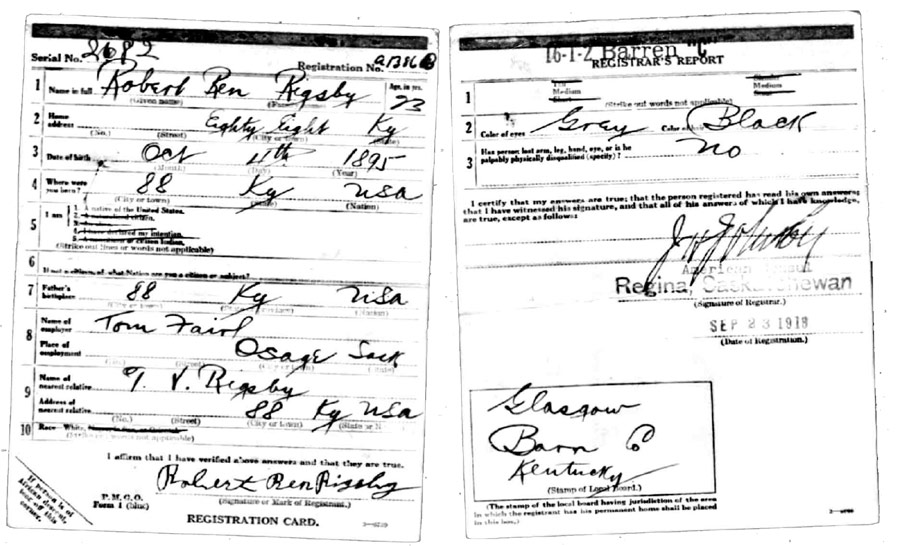 Serial No. 2682
Registration No.
1 Name in full Robert Ren Rigsby
Age, in yrs.
(Given name)
23
2 Home address Eighty Eight Ky
(No.) (Street) (City or town) (State)
3 Date of birth Oct 11th 1895
(Month) (Day) (Year)
4 Where were you born? 88 Ky USA
(City or town) (State) (Nation)
5 I am
1. A native of the United States.
2. A naturalized citizen.
4. I have declared my intention.
5. A noncitizen or citizen Indian.
(Strike out lines or words not applicable)
6 If not a citizen, of what Nation are you a citizen or subject?
7 Father's birthplace 88 Ky USA
8 Name of employer Tom
Place of employment Osage Sask
9 Name of nearest relative V. Rigsby
Address of nearest relative 88 Ky USA
(No.) (Street) (City or town) (State or N
10 Race White,
(Strike out words not applicable)
I affirm that I have verified above answers and that they are true.
Robert Ren Rigsby
(Signature or Mark of Registrant.)
P. M. G. O.
Form 1 (blue)
REGISTRATION CARD.
If person is of African descent, tear off this corner.
16-1-2 Barren "C"
REGISTRAR'S REPORT
1
Tall
Medium
Short
Slender
Medium
Stout
(Strike out words not applicable)
2 Color of eyes Gray Color of hair Black
3 Has person lost arm, leg, hand, eye, or is he palpably physically disqualified (specify)? no
I certify that my answers are true; that the person registered has read his own answers;
that I have witnessed his signature, and that all of his answers of which I have knowledge,
are true, except as follows:
American Consul
Regina, Saskatchewan
(Signature of Registrar.)
SEP 23 1918
(Date of Registration.)
Glasgow
Barn Co
Kentucky
(Stamp of Local Board.)
(The stamp of the local board having jurisdiction of the area
in which the registrant has his permanent home shall be placed
in this box.)